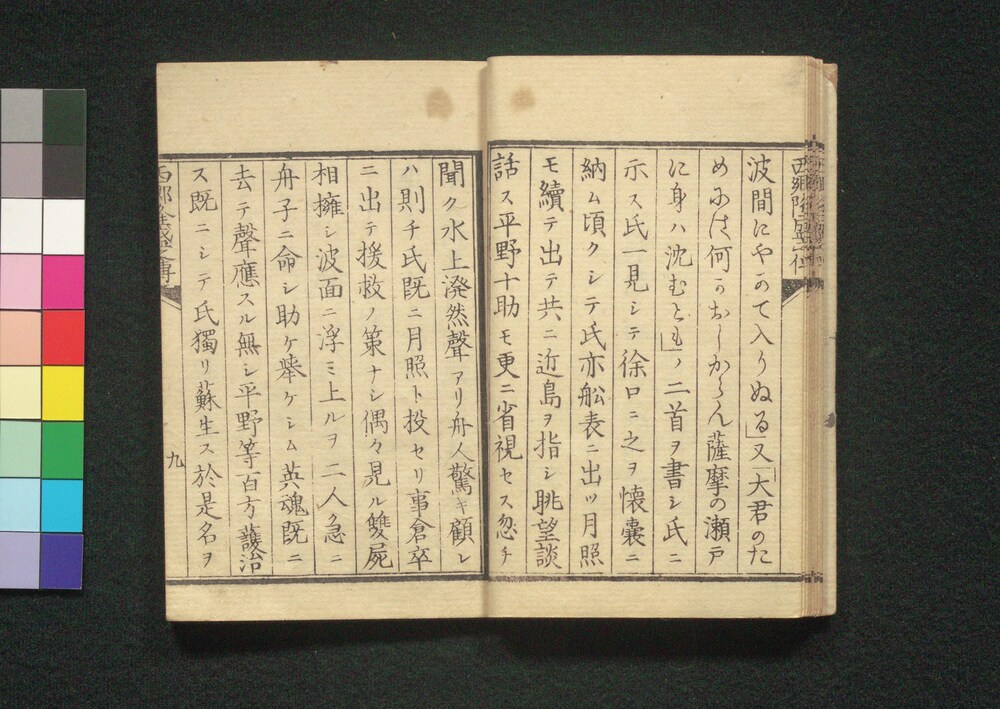 西郷隆盛傳
波間にやかて入りぬる」又「大君のた
めには何かおしからん薩摩の瀬戸
に身ハ沈むとも」ノ二首ヲ書シ氏ニ
示ス氏一見シテ徐ロニ之ヲ懐囊ニ
納ム頃クシテ氏亦舩表ニ出ツ月照
モ續テ出テ共ニ近島ヲ指シ眺望談
話ス平野十助モ更ニ省視セス忽チ
聞ク水上溌然聲アリ舟人驚キ顧レ
ハ則チ氏既ニ月照ト投セリ事倉卒
ニ出テ援救ノ策ナシ偶々見ル雙屍
相擁シ波面ニ浮ミ上ルヲ二人急ニ
舟子ニ命シ助ケ擧ケシム英魂既ニ
去テ聲應スル無シ平野等百方護治
ス既ニシテ氏獨リ蘇生ス於是名ヲ
九